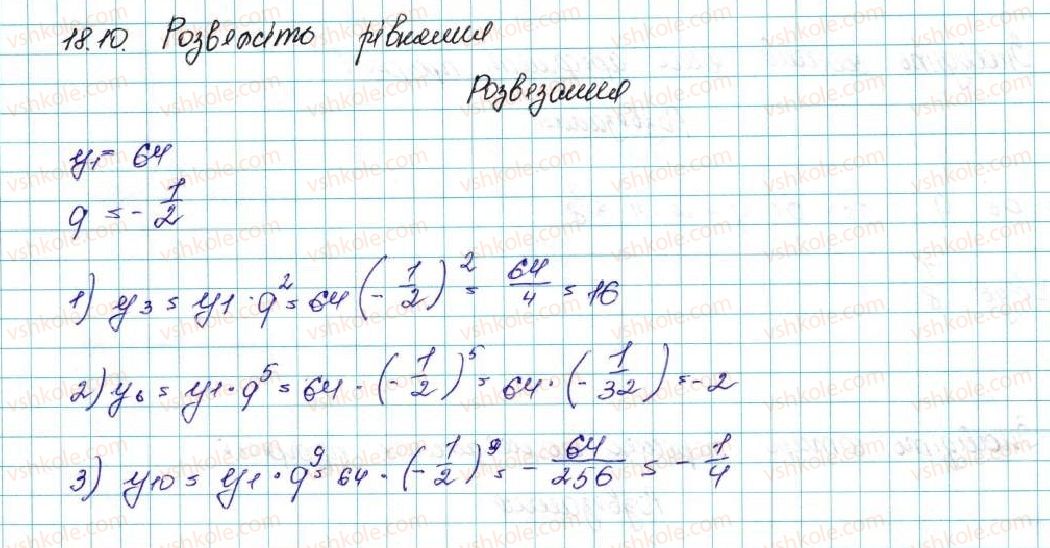 18.10. Розвяжіть рівняння
Розвязання
y₁ = 64
q = -1/2
1) y₃ = y₁ · q² = 64 (-1/2)² = 64/4 = 16
2) y₆ = y₁ · q⁵ = 64 · (-1/2)⁵ = 64 · (-1/32) = -2
3) y₁₀ = y₁ · q⁹ = 64 · (-1/2)⁹ = -64/256 = -1/4